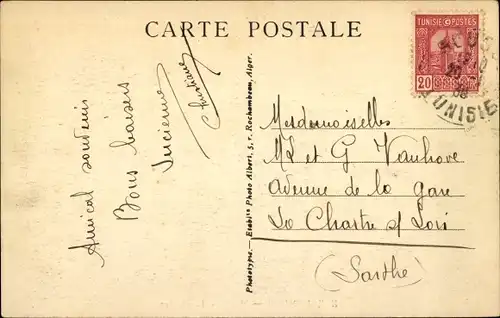 CARTE POSTALE
TUNISIE POSTES
20
TUNISIE
Amical souvenir
Bons baisers
Lucienne
Christiane
Phototypie.—Etablts Photo Albert, 5, r. Rochambeau, Alger.
Mesdemoiselles
ML et G Vanhove
avenue de la gare
La Chartre s/ Loir
(Sarthe)